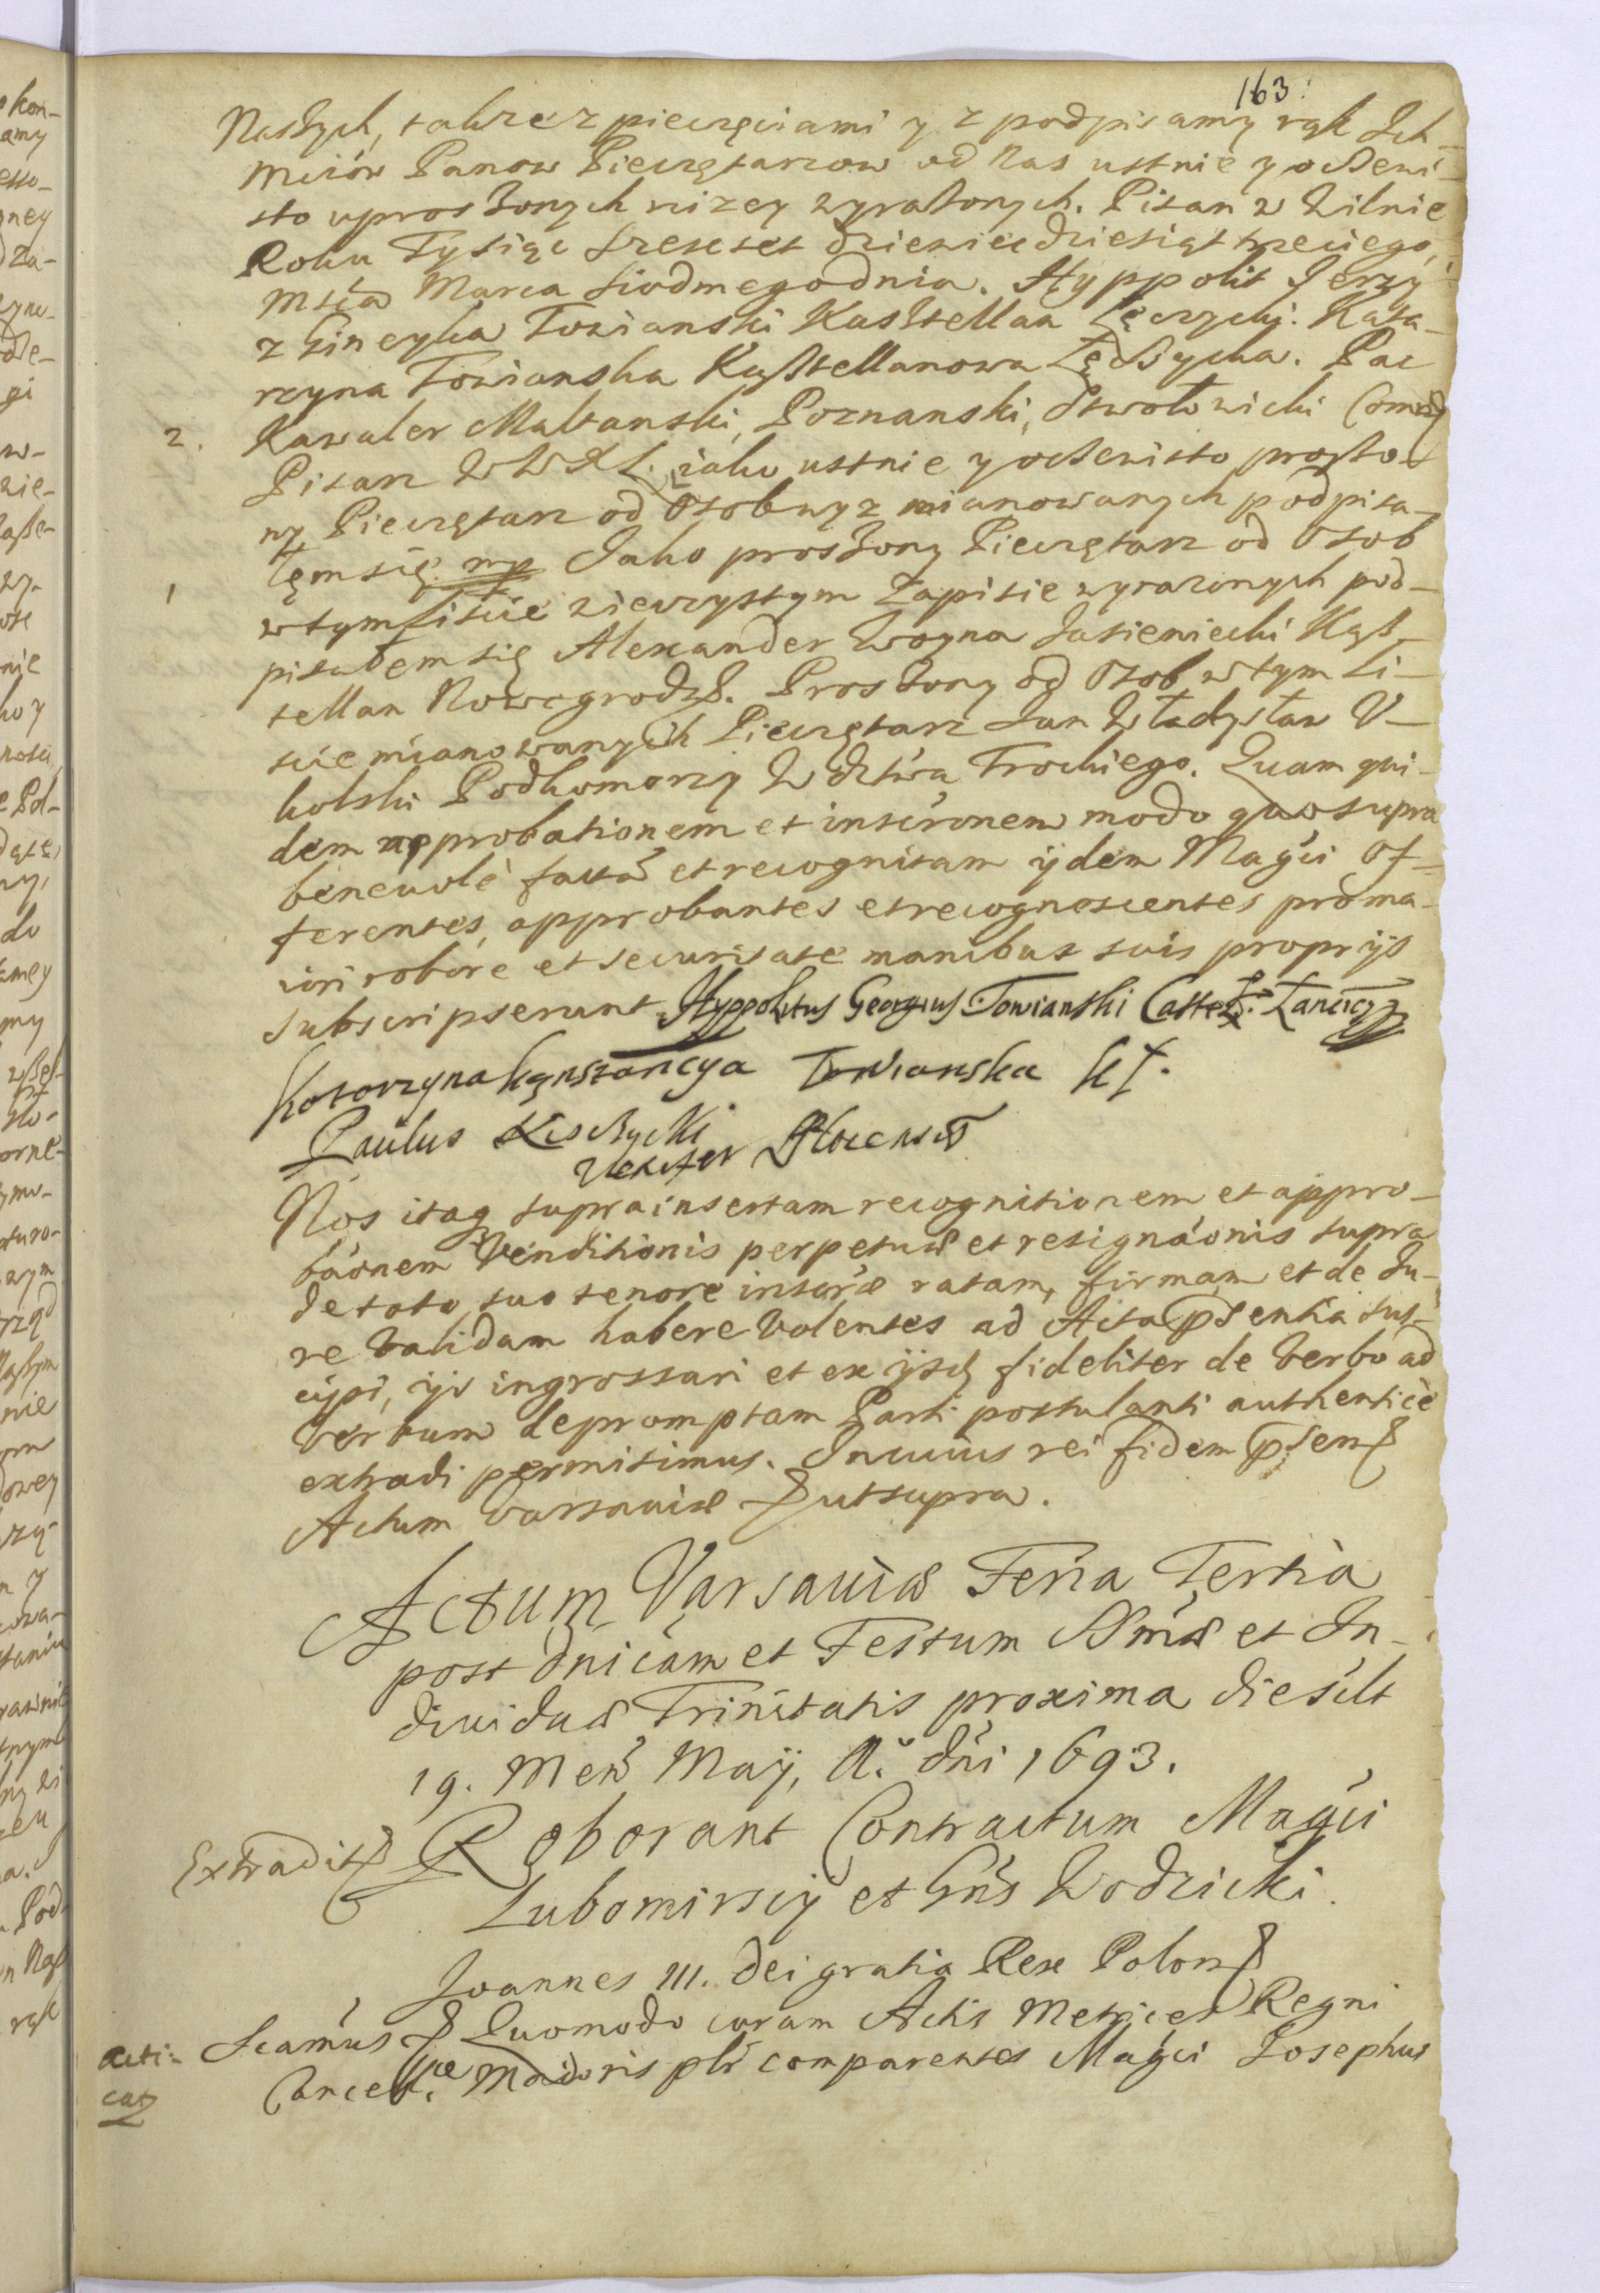 163.
Naszych, takze z pieczęciami y z podpisamy rąk Ich
Mciów Panow Pieczętarzow od Nas ustnie y oczewi-
sto uproszonych nizey wyrażonych. Pisan w Wilnie
Roku Tysiąc szescset dziewiecdziesiąt trzeciego,
Msca Marca siodmego dnia. Hyppolit Jerzy
z Towianski Kasztellan Łęczycki. Kata-
rzyna Towianska Kasztellanowa Łęczycka. Pac
2. Kawaler Maltanski, Poznanski, Stwołowicki Comend
Pisarz W W X L. iako ustnie y oczewisto proszo-
ny Pieczętarz od Osob wyz mianowanych podpisa-
łem się mp Jako proszony Pieczętarz od Osob
1 w tym Liscie wieczystym Zapisie wyrazonych pod-
pisałem się Alexander Woyna Jasieniecki Kasz-
tellan Nowogrodz. Proszony od Osob w tym Li-
scie mianowanych Pieczętarz Jan Władysław U-
kolski Podkomorzy Wdztwa Trockiego. Quam qui-
dem approbationem et inscronem modo quo supra
beneuolè factã et recognitam ijdem Magci Of-
ferentes, approbantes et recognoscentes pro ma-
iori robore et securitate manibus suis proprijs
subscripserunt. Hyppolitus Georgius Towianski Castel. Lancicz
Katarzyna Konstancya Towianska K Ł.
Paulus
Vexifer Plocensis
Nos itaq suprainsertam recognitionem et appro-
baonem Venditionis perpetuæ et resignaonis supra
de toto suo tenore insertæ ratam, firmam et de Ju-
re validam habere volentes ad Acta psentia sus-
cipi, ijs ingrossari et ex ijsd fideliter de verbo ad
verbum depromptam Parti postulanti authenticè
extradi permisimus. In cuius rei fidem psens
Actum Varsauiæ ut supra.
Actum Varsauiæ Feria Tertia
post Dnicam et Festum SSmæ et In-
diuiduæ Trinitatis proxima die silt
19. Mens Maij, A. Dni 1693.
Extradit Roborant Contractum Magci
Lubomirscij et Gns Wodzicki.
Joannes III. Dei gratia Rex Polon
Acti- Sçamus Quomodo coram Actis Metrices Regni
cat Cancell. Maioris plr comparentes Magci Josephus